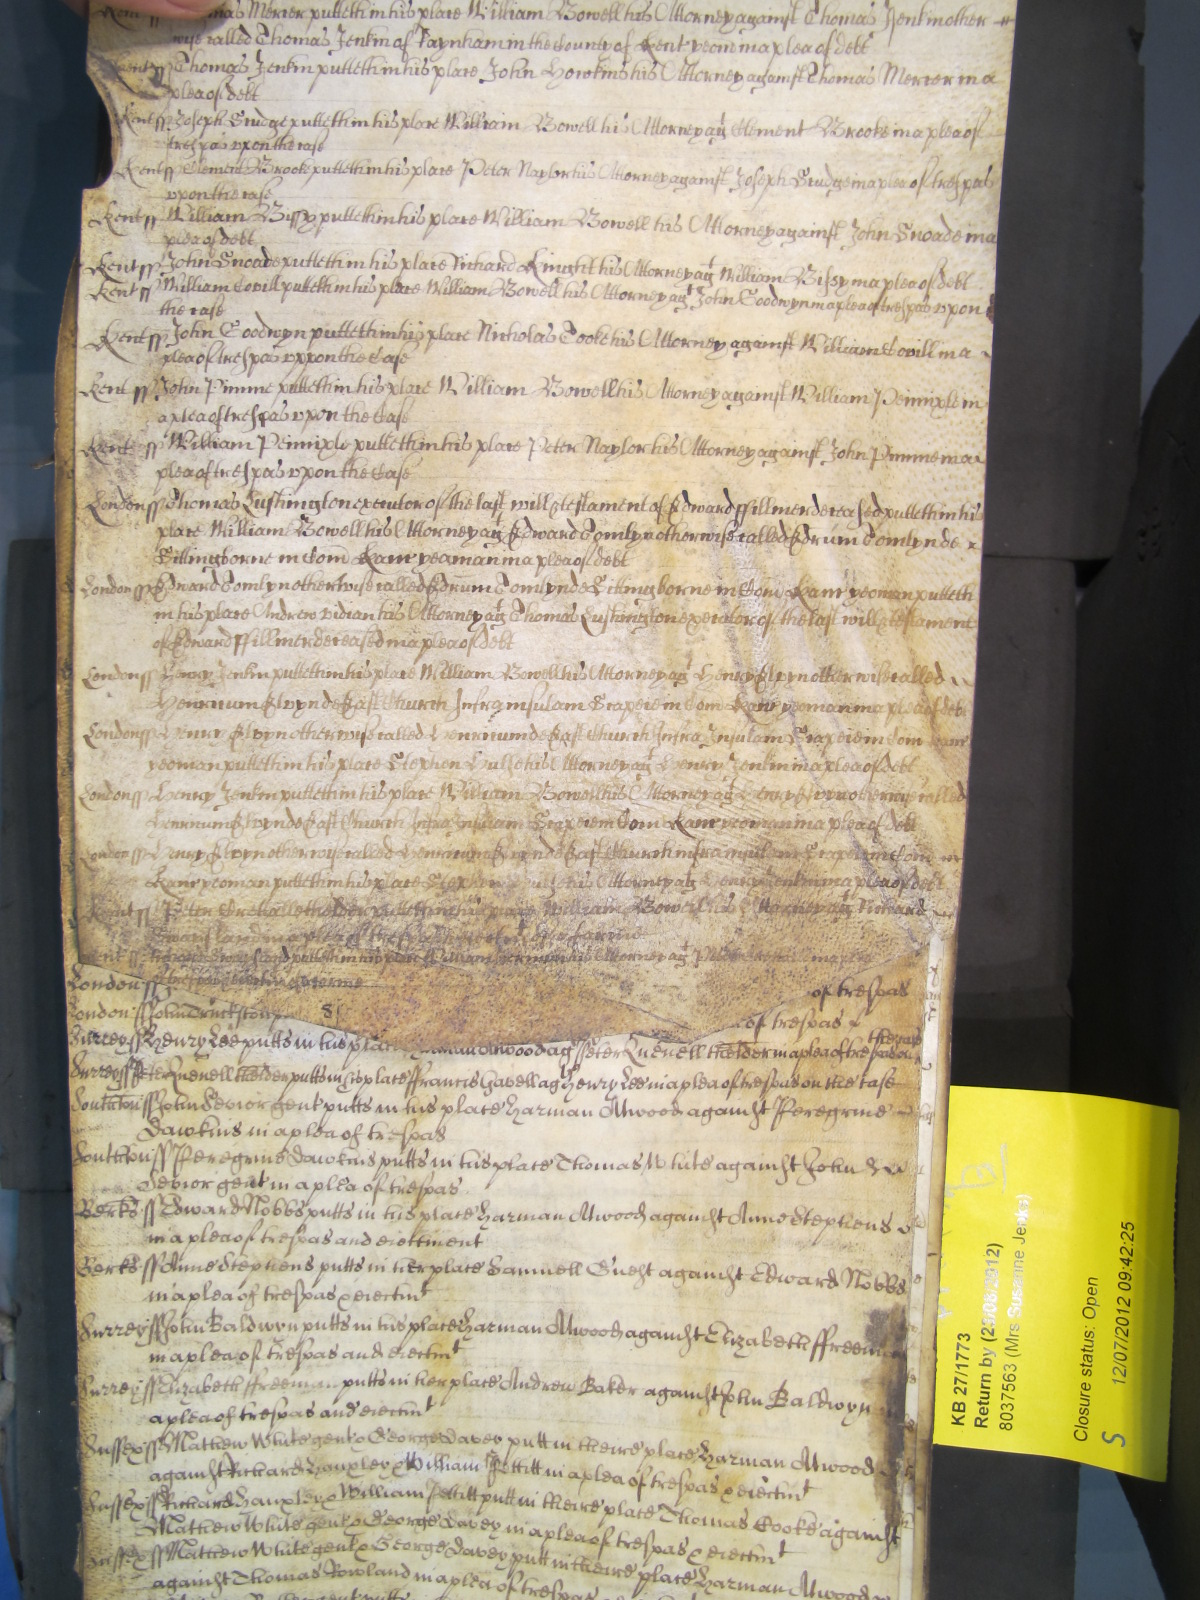 Kent Thomas Mercer putteth in his place William Bowell his Attorney against Thomas Jenkin other
wise called Thomas Jenkin of Faynham in the County of Kent yeom in a plea of debt
Kent ss Thomas Jenkin putteth in his place John Howkins his Attorney against Thomas Mercer in a
plea of debt
Kent ss Joseph Grudge putteth in his place William Bowell his Attorney agt Clement Brooke in a plea of
trespas vpon the case
Kent ss Clement Brooke putteth in his place Peter Naylor his Attorney against Joseph Grudge in a plea of trespas
vpon the case
Kent ss William Bissy putteth in his place William Bowell his Attorney against John Snoade in a
plea of debt
Kent ss John Snoade putteth in his place Richard Knight his Attorney agt William Bissy in a plea of debt
Kent ss William Covill putteth in his place William Bowell his Attorney agt John Goodwyn in a plea of trespas vpon
the case
Kent ss John Goodwyn putteth in his place Nicholas Cooke his Attorney against William Covill in a
plea of trespas vppon the Case
Kent ss John Pimme putteth in his place William Bowell his Attorney against William Pennixle in
a plea of trespas vpon the Case
Kent ss William Pennixle putteth in his place Peter Naylor his Attorney against John Pimme in a
plea of trespas vpon the Case
London ss Thomas Lushington executor of the last will & testament of Edward ffillmer deceased putteth in his
place William Bowell his Attorney agt Edward Tomlyn otherwise called Edrum Tomlyn de
Sittingborne in Com Kanc yeoman in a plea of debt
London ss Edward Tomlyn otherwise called Edrum Tomlyn de Sittingborne in Com Kanc yeoman putteth
in his place Andrew vidian his Attorney agt Thomas Lushington executor of the last will & testament
of Edward ffillmer deceased in a plea of debt
London ss Henry Jenkin putteth in his place William Bowell his Attorney agt Henry Elvyn otherwise called
Henricum Elvyn de East Church Infra insulam Scapeie in Com Kanc yeoman in a plea of debt
London ss Henry Elvyn otherwise called Henricum de East Church Infra Insulam Scapeie in Com Kanc
yeoman putteth in his place Stephen his Attorney agt Henry Jenkin in a plea of debt
London ss Henry Jenkin putteth in his place William Bowell his Attorney agt Henry Elvyn otherwise called
Henricum Elvyn de East Church Infra Insulam Scapeie in Com Kanc yeoman in a plea of debt
London ss Henry Elvyn otherwise called Henricum Elvyn de East Church infra insulam Scapeie in Com
Kanc yeoman putteth in his place Stephen his Attorney agt Henry Jenkin in a plea of debt
Kent ss Peter the elder putteth in his place William Bowell his Attorney agt Richard
in a plea of
Kent ss Richard putteth in his place William his Attorney agt Peter
London ss of trespas
London ss John of trespas
Surrey ss Henry Lee putts in his place Atwood agt Peter Quenell the elder in a plea of trespas on the case
Surrey ss Peter Quenell the elder putts in his place ffrancis Havell agt Henry Lee in a plea of trespas on the case
Southton ss John Sevior gent putts in his place Harman Atwood against Peregrine
Dawkins in a plea of trespas
Southton ss Peregrine Dawkins putts in his place Thomas White against John
Sevior gent in a plea of trespas
Berks ss Edward Nobbs putts in his place Harman Atwood against Anne Stephens
in a plea of trespas and eiectment
Berks ss Anne Stephens putts in her place Samuell Guest against Edward Nobbs
in a plea of trespas & eiectmt
Surrey ss John Baldwyn putts in his place Harman Atwood against Elizabeth ffreeman
in a plea of trespas and eiectmt
Surrey ss Elizabeth ffreeman putts in her place Andrew Baker against John Baldwyn in
a plea of trespas and eiectmt
Sussex ss Mathew White gent & George Davey putt in theire place Harman Atwood
against Richard & William Pettitt in a plea of trespas & eiectmt
Sussex ss Richard & William Pettitt putt in theire place Thomas Cooke against
Mathew White gent & George Davey in a plea of trespas & eiectmt
Sussex ss Mathew White gent & George Davey putt in theire place Harman Atwood
against Thomas Rowland in a plea of trespas
KB 27/1773
Return by (2012)
8037563 (Mrs Susanne Jenks)
Closure status: Open
S 12/07/2012 09:42:25